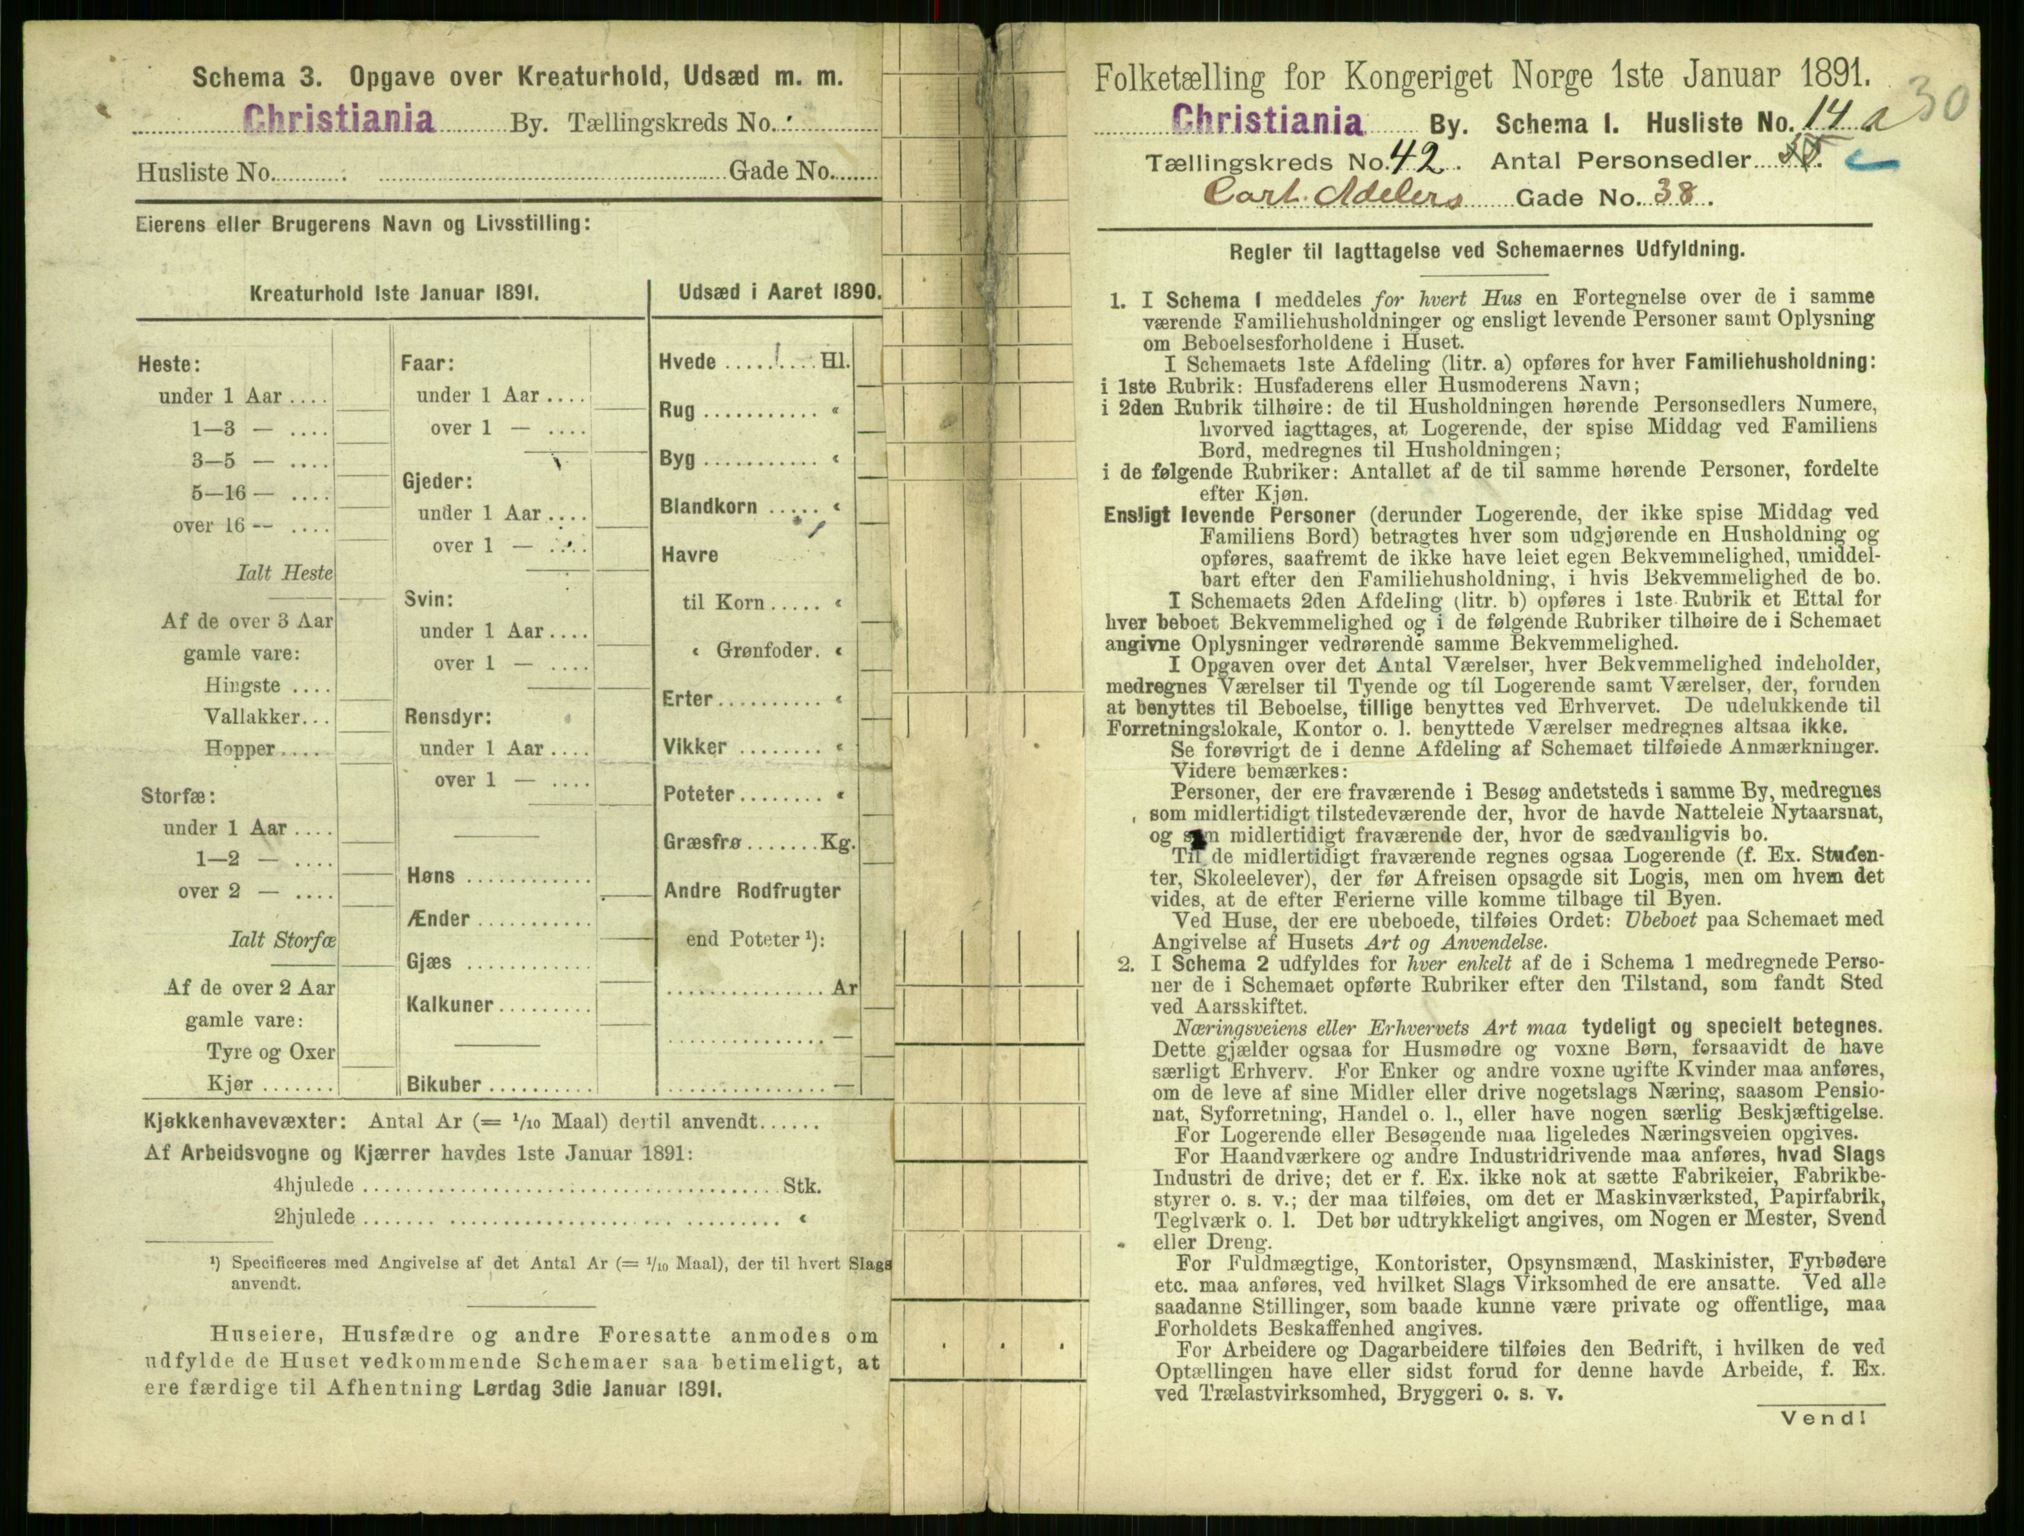 Schema 3. Opgave over Kreaturhold, Udsæd m. m.
Christiania By. Tællingskreds No.
Husliste No. Gade No.
Eierens eller Brugerens Navn og Livsstilling:
Kreaturhold 1ste Januar 1891.
Heste:
under 1 Aar ....
1—3 — ....
3—5 — ....
5—16 — ....
over 16 -- ....
Ialt Heste
Af de over 3 Aar
gamle vare:
Hingste ....
Vallakker...
Hopper ....
Storfæ:
under 1 Aar ....
1—2 — ....
over 2 — ....
Ialt Storfæ
Af de over 2 Aar
gamle vare:
Tyre og Oxer
Kjør .......
Faar:
under 1 Aar ....
over 1 — ....
Gjeder:
under 1 Aar ....
over 1 — ....
Svin:
under 1 Aar ....
over 1 — ....
Rensdyr:
under 1 Aar ....
over 1 — ....
Høns ............
Ænder ...........
Gjæs ............
Kalkuner .........
Bikuber ..........
Udsæd i Aaret 1890.
Hvede ........ Hl.
Rug ........... «
Byg ........... «
Blandkorn ..... «
Havre
til Korn ..... «
« Grønfoder. «
Erter .......... «
Vikker ........ «
Poteter ........ «
Græsfrø ....... Kg.
Andre Rodfrugter
end Poteter ¹):
............... Ar
............... —
............... —
Kjøkkenhavevæxter: Antal Ar (= 1/10 Maal) dertil anvendt ......
Af Arbeidsvogne og Kjærrer havdes 1ste Januar 1891:
4hjulede ........................................ Stk.
2hjulede ........................................ «
¹) Specificeres med Angivelse af det Antal Ar (= 1/10 Maal), der til hvert Slags
anvendt.
Huseiere, Husfædre og andre Foresatte anmodes om
udfylde de Huset vedkommende Schemaer saa betimeligt, at
ere færdige til Afhentning Lørdag 3die Januar 1891.
Folketælling for Kongeriget Norge 1ste Januar 1891.
30
Christiania By. Schema 1. Husliste No. 14 a
Tællingskreds No. 42. Antal Personsedler
Carl Adelers Gade No. 38.
Regler til Iagttagelse ved Schemaernes Udfyldning.
1. I Schema 1 meddeles for hvert Hus en Fortegnelse over de i samme
værende Familiehusholdninger og ensligt levende Personer samt Oplysning
om Beboelsesforholdene i Huset.
I Schemaets 1ste Afdeling (litr. a) opføres for hver Familiehusholdning:
i 1ste Rubrik: Husfaderens eller Husmoderens Navn;
i 2den Rubrik tilhøire: de til Husholdningen hørende Personsedlers Numere,
hvorved iagttages, at Logerende, der spise Middag ved Familiens
Bord, medregnes til Husholdningen;
i de følgende Rubriker: Antallet af de til samme hørende Personer, fordelte
efter Kjøn.
Ensligt levende Personer (derunder Logerende, der ikke spise Middag ved
Familiens Bord) betragtes hver som udgjørende en Husholdning og
opføres, saafremt de ikke have leiet egen Bekvemmelighed, umiddel-
bart efter den Familiehusholdning, i hvis Bekvemmelighed de bo.
I Schemaets 2den Afdeling (litr. b) opføres i 1ste Rubrik et Ettal for
hver beboet Bekvemmelighed og i de følgende Rubriker tilhøire de i Schemaet
angivne Oplysninger vedrørende samme Bekvemmelighed.
I Opgaven over det Antal Værelser, hver Bekvemmelighed indeholder,
medregnes Værelser til Tyende og til Logerende samt Værelser, der, foruden
at benyttes til Beboelse, tillige benyttes ved Erhvervet. De udelukkende til
Forretningslokale, Kontor o. l. benyttede Værelser medregnes altsaa ikke.
Se forøvrigt de i denne Afdeling af Schemaet tilføiede Anmærkninger.
Videre bemærkes:
Personer, der ere fraværende i Besøg andetsteds i samme By, medregnes
som midlertidigt tilstedeværende der, hvor de havde Natteleie Nytaarsnat,
og som midlertidigt fraværende der, hvor de sædvanligvis bo.
Til de midlertidigt fraværende regnes ogsaa Logerende (f. Ex. Studen-
ter, Skoleelever), der før Afreisen opsagde sit Logis, men om hvem det
vides, at de efter Ferierne ville komme tilbage til Byen.
Ved Huse, der ere ubeboede, tilføies Ordet: Ubeboet paa Schemaet med
Angivelse af Husets Art og Anvendelse.
2. I Schema 2 udfyldes for hver enkelt af de i Schema 1 medregnede Perso-
ner de i Schemaet opførte Rubriker efter den Tilstand, som fandt Sted
ved Aarsskiftet.
Næringsveiens eller Erhvervets Art maa tydeligt og specielt betegnes.
Dette gjælder ogsaa for Husmødre og voxne Børn, forsaavidt de have
særligt Erhverv. For Enker og andre voxne ugifte Kvinder maa anføres,
om de leve af sine Midler eller drive nogetslags Næring, saasom Pensio-
nat, Syforretning, Handel o. l., eller have nogen særlig Beskjæftigelse.
For Logerende eller Besøgende maa ligeledes Næringsveien opgives.
For Haandværkere og andre Industridrivende maa anføres, hvad Slags
Industri de drive; det er f. Ex. ikke nok at sætte Fabrikeier, Fabrikbe-
styrer o. s. v.; der maa tilføies, om det er Maskinværksted, Papirfabrik,
Teglværk o. l. Det bør udtrykkeligt angives, om Nogen er Mester, Svend
eller Dreng.
For Fuldmægtige, Kontorister, Opsynsmænd, Maskinister, Fyrbødere
etc. maa anføres, ved hvilket Slags Virksomhed de ere ansatte. Ved alle
saadanne Stillinger, som baade kunne være private og offentlige, maa
Forholdets Beskaffenhed angives.
For Arbeidere og Dagarbeidere tilføies den Bedrift, i hvilken de ved
Optællingen have eller sidst forud for denne havde Arbeide, f. Ex.
ved Trælastvirksomhed, Bryggeri o. s. v.
Vend!